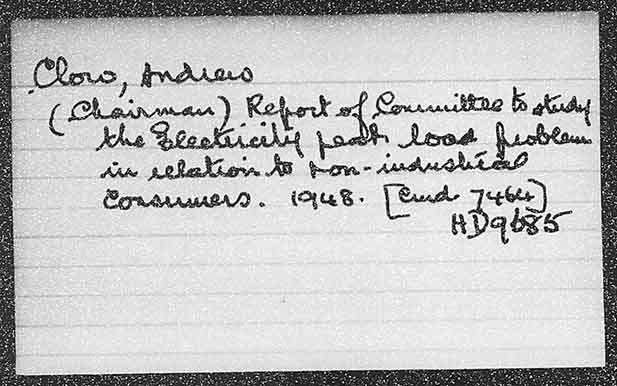 Clow, Andrew
(Chairman) Report of Committee to study
the Electricity peak load problem
in relation to non-industrial
consumers. 1948. [Cmd. 7464]
HD9685